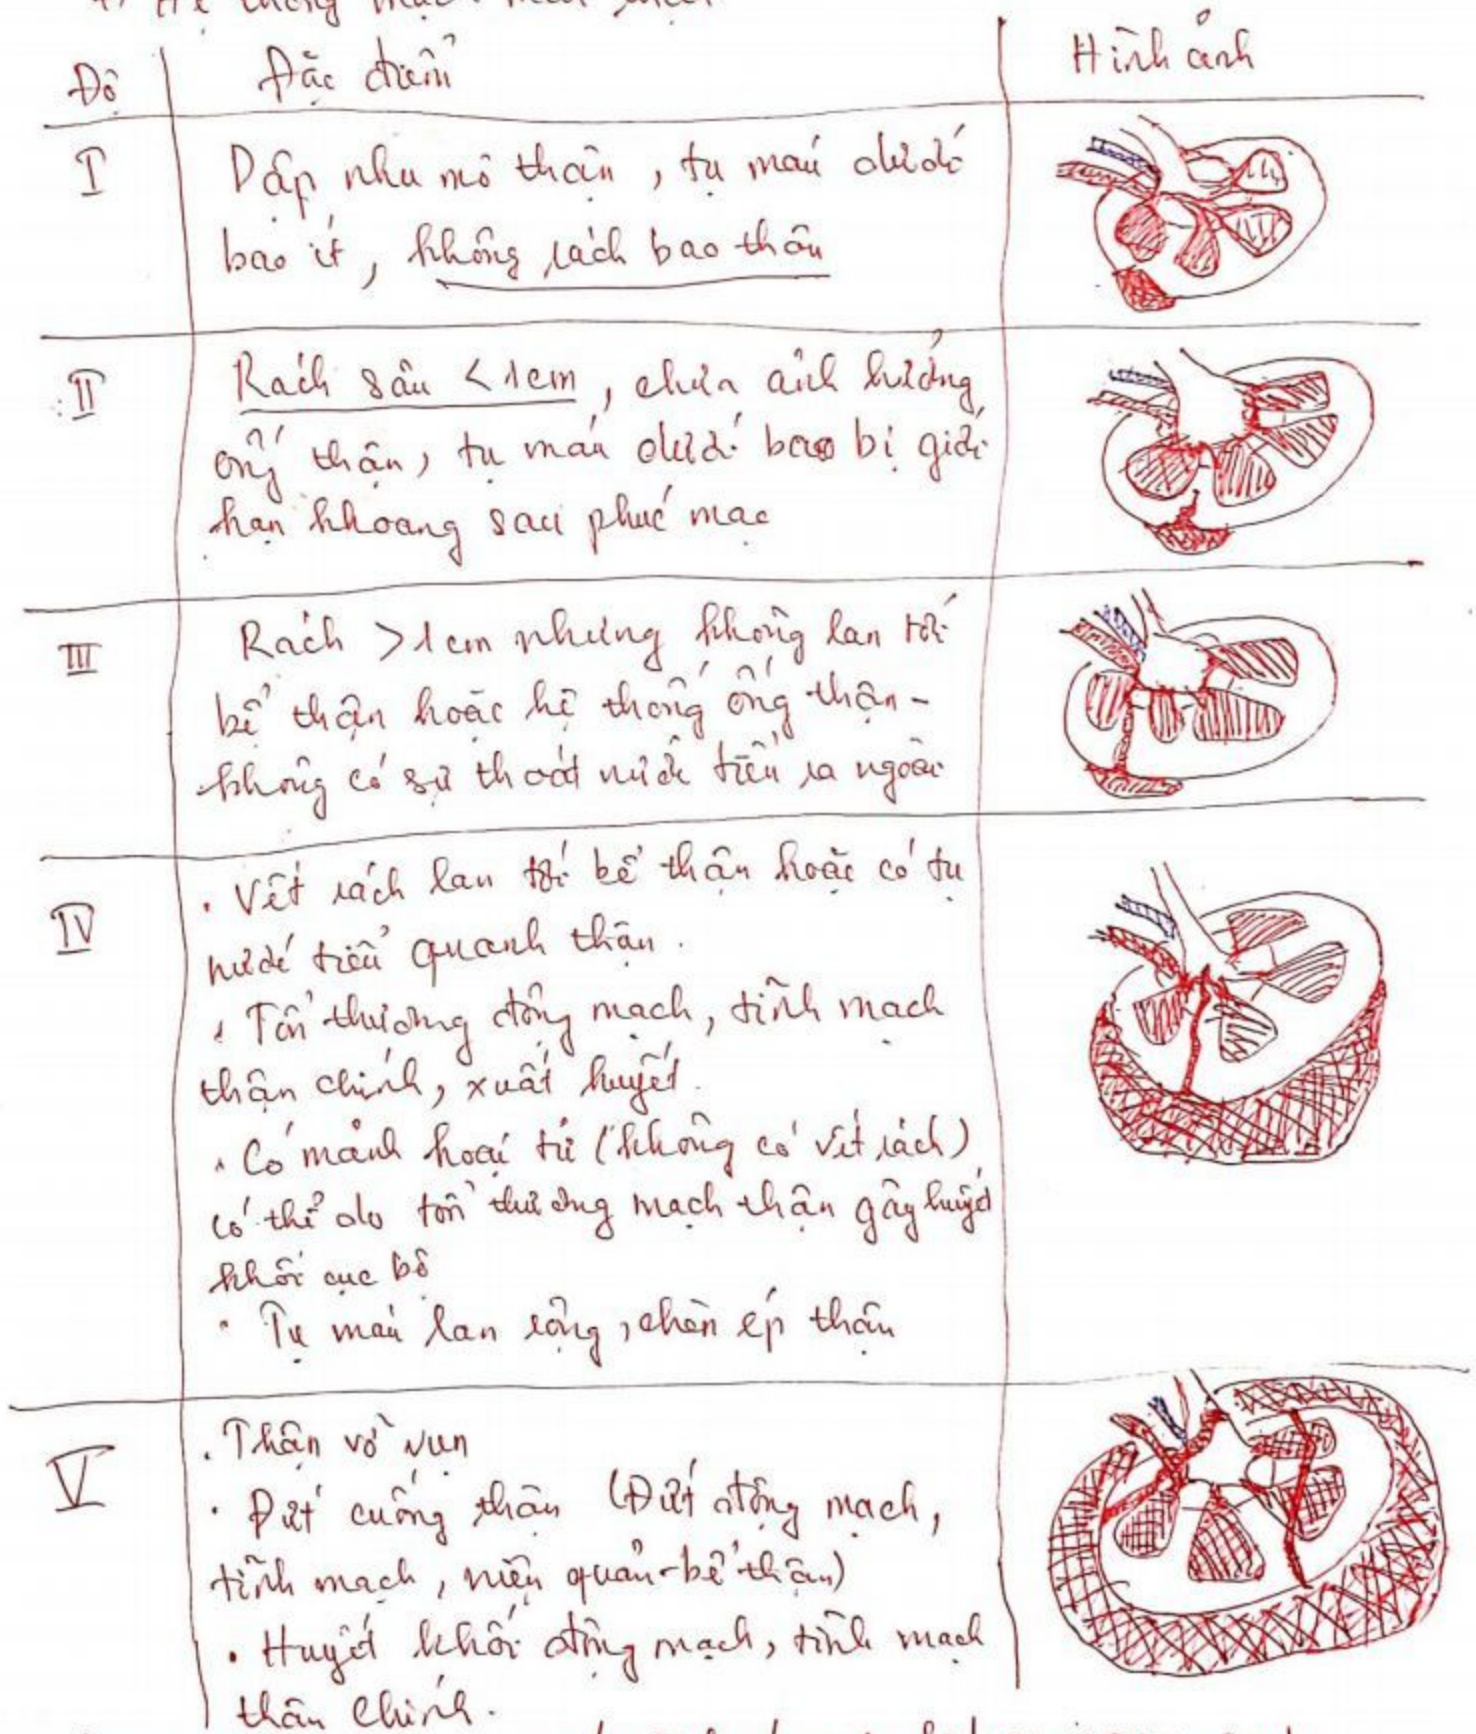 Độ
Đặc điểm
Hình ảnh
I
Dập nhu mô thận, tụ máu dưới
bao ít, không rách bao thận
II
Rách sâu <1cm, chưa ảnh hưởng
ống thận, tụ máu dưới bao bị giới
hạn khoang sau phúc mạc
III
Rách >1cm nhưng không lan tới
bể thận hoặc hệ thống ống thận -
không có sự thoát nước tiểu ra ngoài
IV
• Vết rách lan tới bể thận hoặc có tụ
nước tiểu quanh thận.
• Tổn thương động mạch, tĩnh mạch
thận chính, xuất huyết.
• Có mảnh hoại tử (không có vết rách)
có thể do tổn thương mạch thận gây huyết
khối cục bộ
• Tụ máu lan rộng, chèn ép thận
V
• Thận vỡ vụn
• Đứt cuống thận (Đứt động mạch,
tĩnh mạch, niệu quản-bể thận)
• Huyết khối động mạch, tĩnh mạch
thận chính.